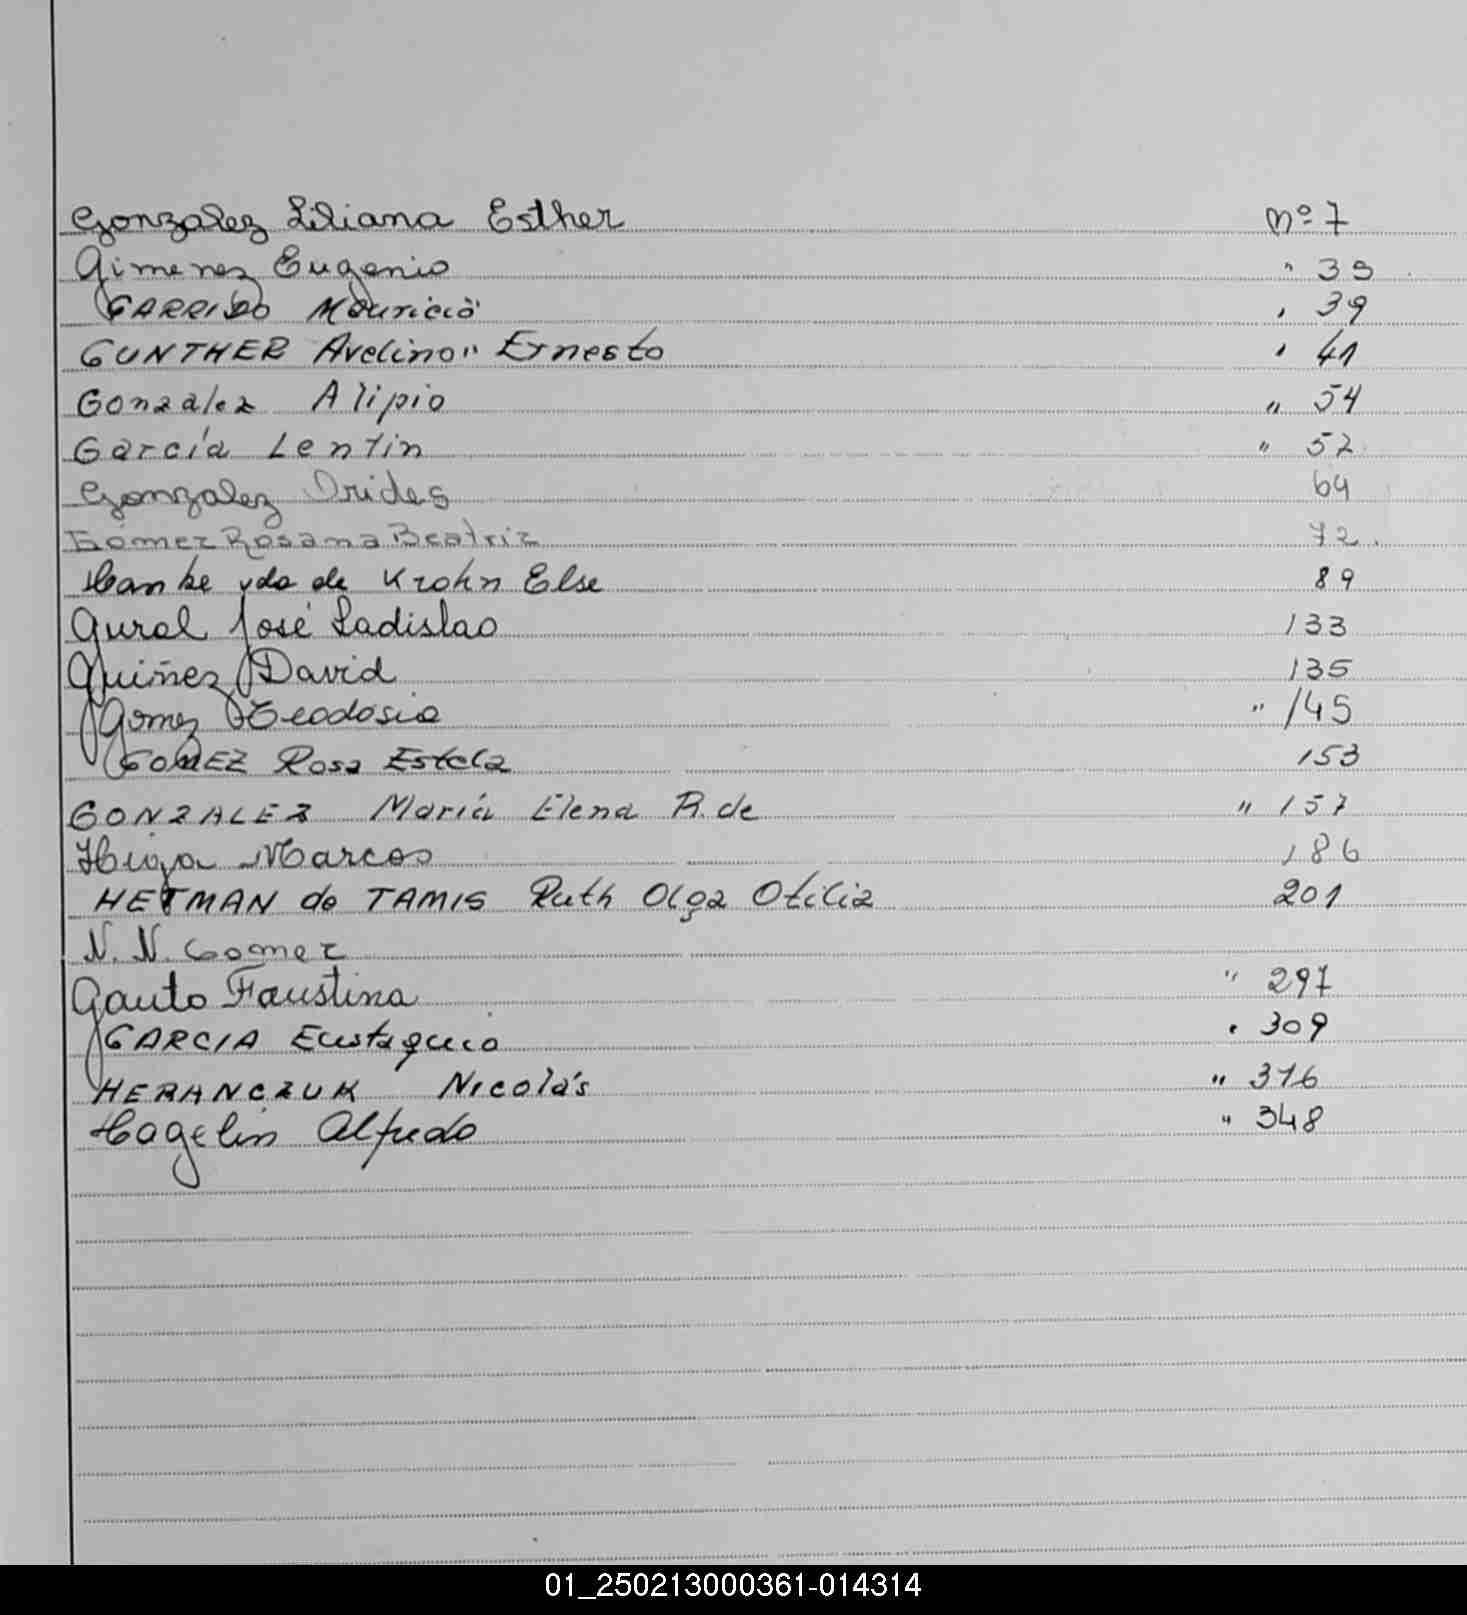 Gonzalez Liliana Esther nº 7
Gimenez Eugenio " 35
GARRIDO Mauricio " 39
GUNTHER Avelino " Ernesto " 41
Gonzalez Alipio " 54
García Lentin " 57
Gonzalez Irides 64
Gómez Rosana Beatriz 72.
Hanke vda de Krohn Else 89
Gural José Ladislao 133
Guiñez David 135
Gomez Teodosia " 145
GOMEZ Rosa Estela 153
GONZALEZ María Elena R. de " 157
Higa Marcos 186
HETMAN de TAMIS Ruth Olga Otilia 201
N. N. Gomez
Gauto Faustina " 297
GARCIA Eustaquio " 309
HERANCZUK Nicolás " 316
Hagelin Alfredo " 348
01_250213000361-014314